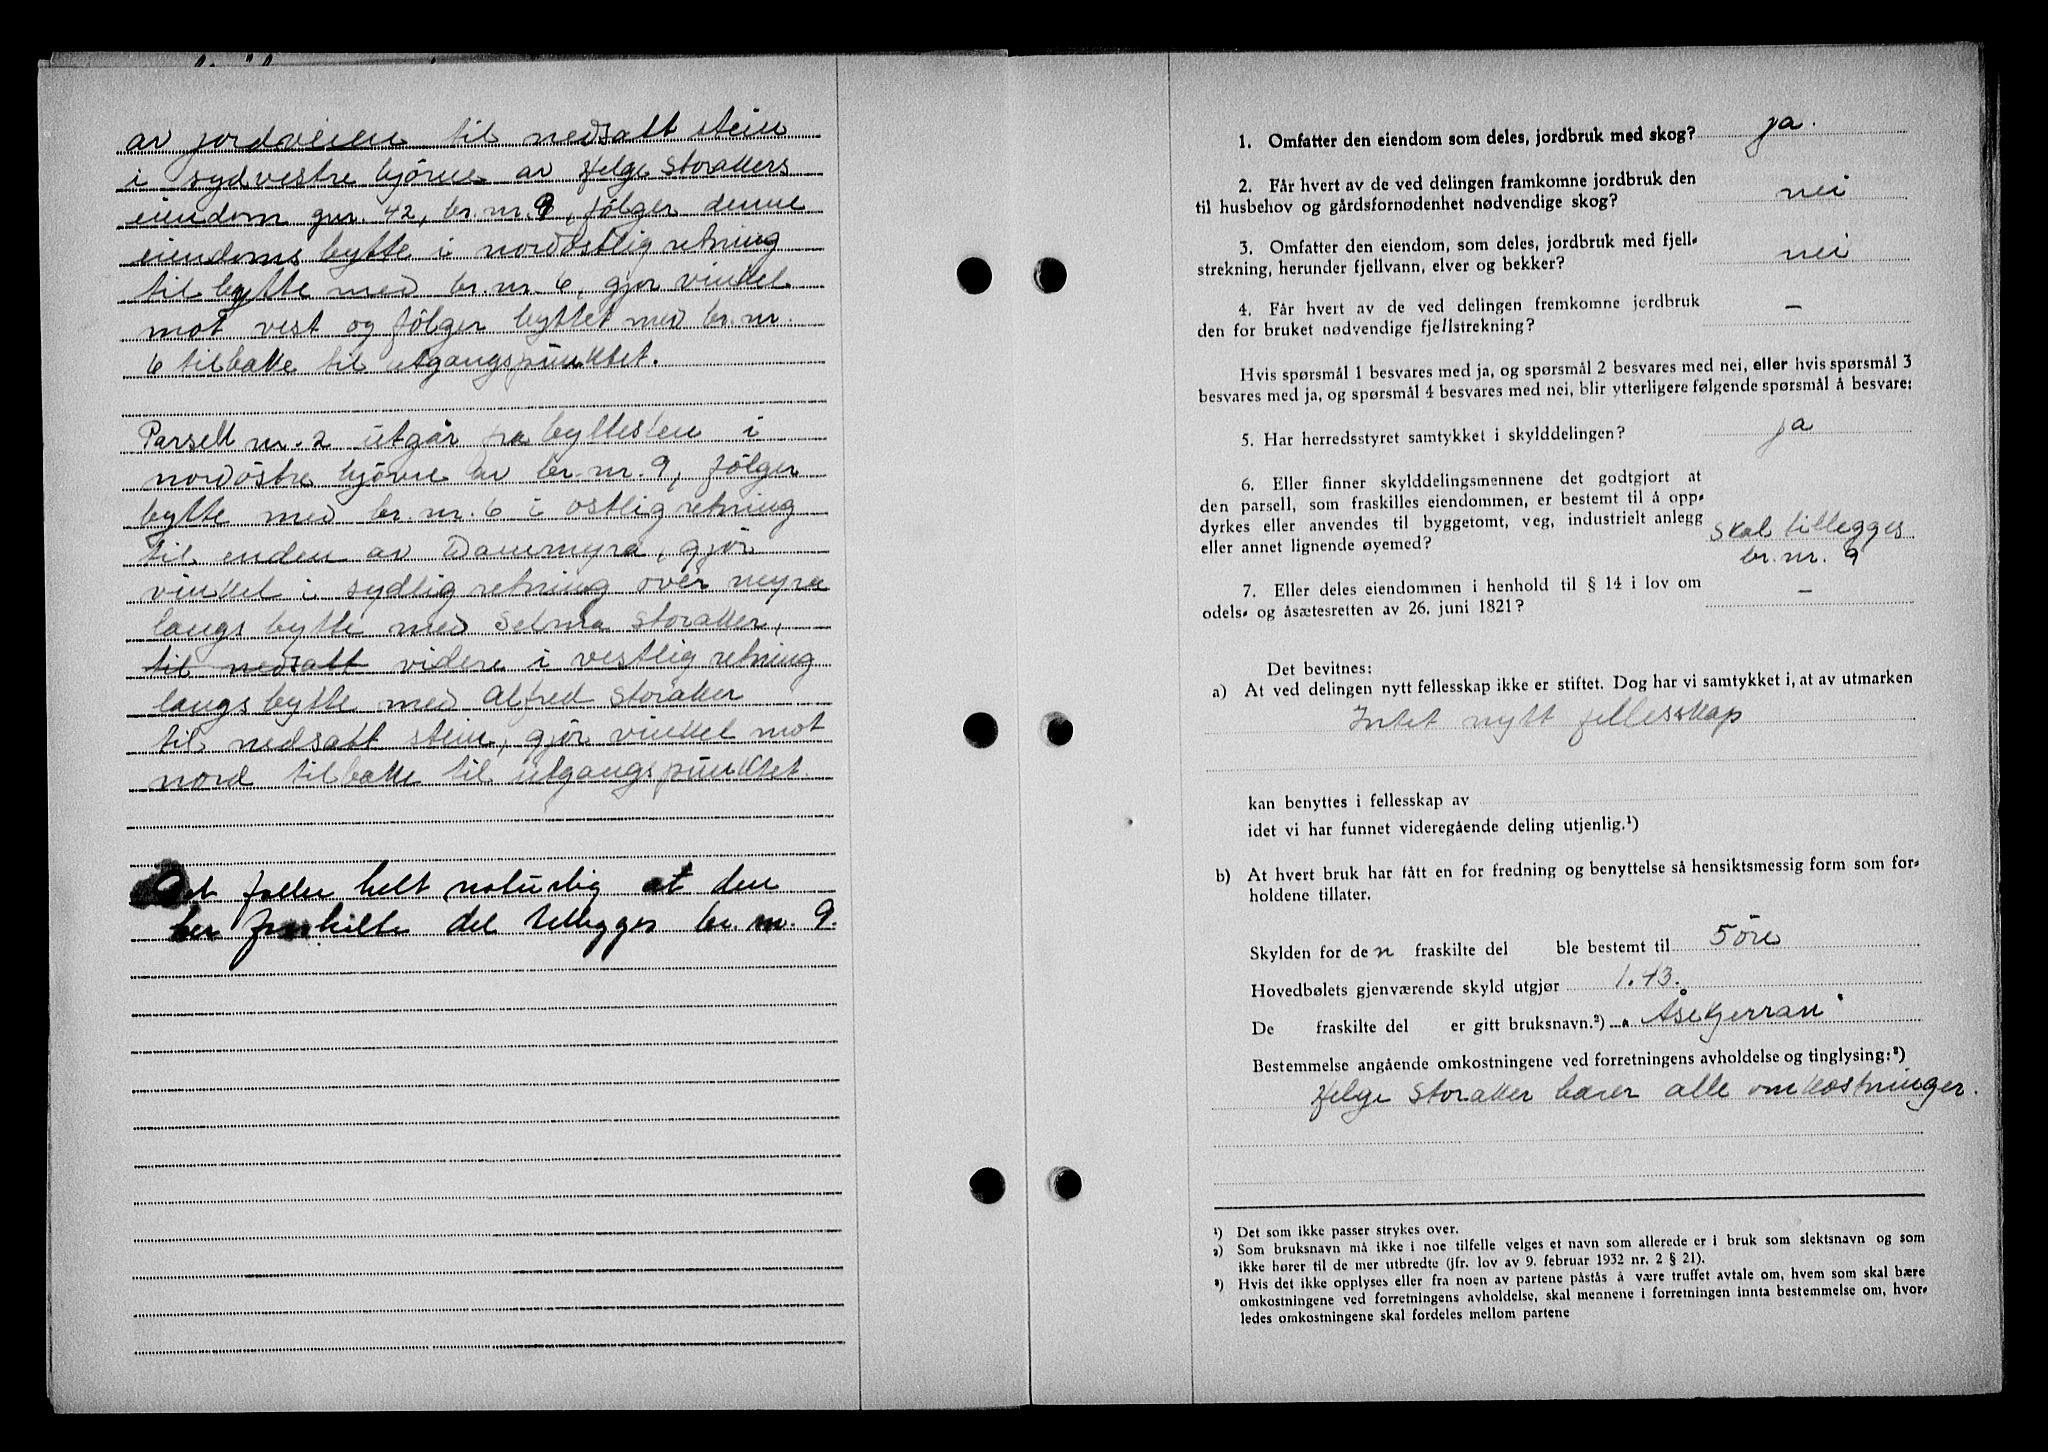 av jordveien til nedsatt stein
i sydvestre hjörne av Helge Storakers
eiendom gnr. 42, br. nr. 9, følger denne
eiendoms bytte i nordöstlig retning
til bytte med br. nr. 6, gjör vinkel
mot vest og fölger byttet med br. nr.
6 tilbake til utgangspunktet.
Parsell nr. 2 utgår fra byttesten i
nordöstre hjörne av br. nr. 9, fölger
bytte med br. nr. 6 i östlig retning
til enden av Dammyra, gjör
vinkel i sydlig retning over myra
langs bytte med Selma Storaker,
til nedsatt videre i vestlig retning
langs bytte med Alfred Storaker
til nedsatt stein, gjör vinkel mot
nord tilbake til utgangspunktet.
Det faller helt naturlig at den
her fraskilte del tillegges br. nr. 9.
1. Omfatter den eiendom som deles, jordbruk med skog? ja.
2. Får hvert av de ved delingen framkomne jordbruk den
til husbehov og gårdsfornødenhet nødvendige skog? nei
3. Omfatter den eiendom, som deles, jordbruk med fjell-
strekning, herunder fjellvann, elver og bekker? nei
4. Får hvert av de ved delingen fremkomne jordbruk
den for bruket nødvendige fjellstrekning? —
Hvis spørsmål 1 besvares med ja, og spørsmål 2 besvares med nei, eller hvis spørsmål 3
besvares med ja, og spørsmål 4 besvares med nei, blir ytterligere følgende spørsmål å besvare:
5. Har herredsstyret samtykket i skylddelingen? ja
6. Eller finner skylddelingsmennene det godtgjort at
den parsell, som fraskilles eiendommen, er bestemt til å opp-
dyrkes eller anvendes til byggetomt, veg, industrielt anlegg
eller annet lignende øyemed? Skal tillegges
br. nr. 9
7. Eller deles eiendommen i henhold til § 14 i lov om
odels- og åsætesretten av 26. juni 1821? —
Det bevitnes:
a) At ved delingen nytt fellesskap ikke er stiftet. Dog har vi samtykket i, at av utmarken
Intet nytt fellesskap
kan benyttes i fellesskap av
idet vi har funnet videregående deling utjenlig.¹)
b) At hvert bruk har fått en for fredning og benyttelse så hensiktsmessig form som for-
holdene tillater.
Skylden for den fraskilte del ble bestemt til 5 öre
Hovedbølets gjenværende skyld utgjør 1.13.
De fraskilte del er gitt bruksnavn.²) „Åsekjerran"
Bestemmelse angående omkostningene ved forretningens avholdelse og tinglysing:³)
Helge Storaker bærer alle omkostninger.
¹) Det som ikke passer strykes over.
²) Som bruksnavn må ikke i noe tilfelle velges et navn som allerede er i bruk som slektsnavn og som
ikke hører til de mer utbredte (jfr. lov av 9. februar 1932 nr. 2 § 21).
³) Hvis det ikke opplyses eller fra noen av partene påstås å være truffet avtale om, hvem som skal bære
omkostningene ved forretningens avholdelse, skal mennene i forretningen innta bestemmelse om, hvor-
ledes omkostningene skal fordeles mellom partene